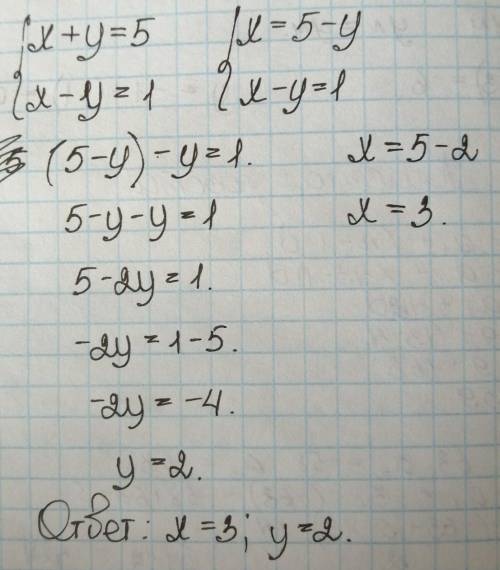 x+y=5 x=5-y
x-y=1 x-y=1
(5-y)-y=1. x=5-2
5-y-y=1 x=3.
5-2y=1.
-2y=1-5.
-2y=-4.
y=2.
Ответ: x=3; y=2.